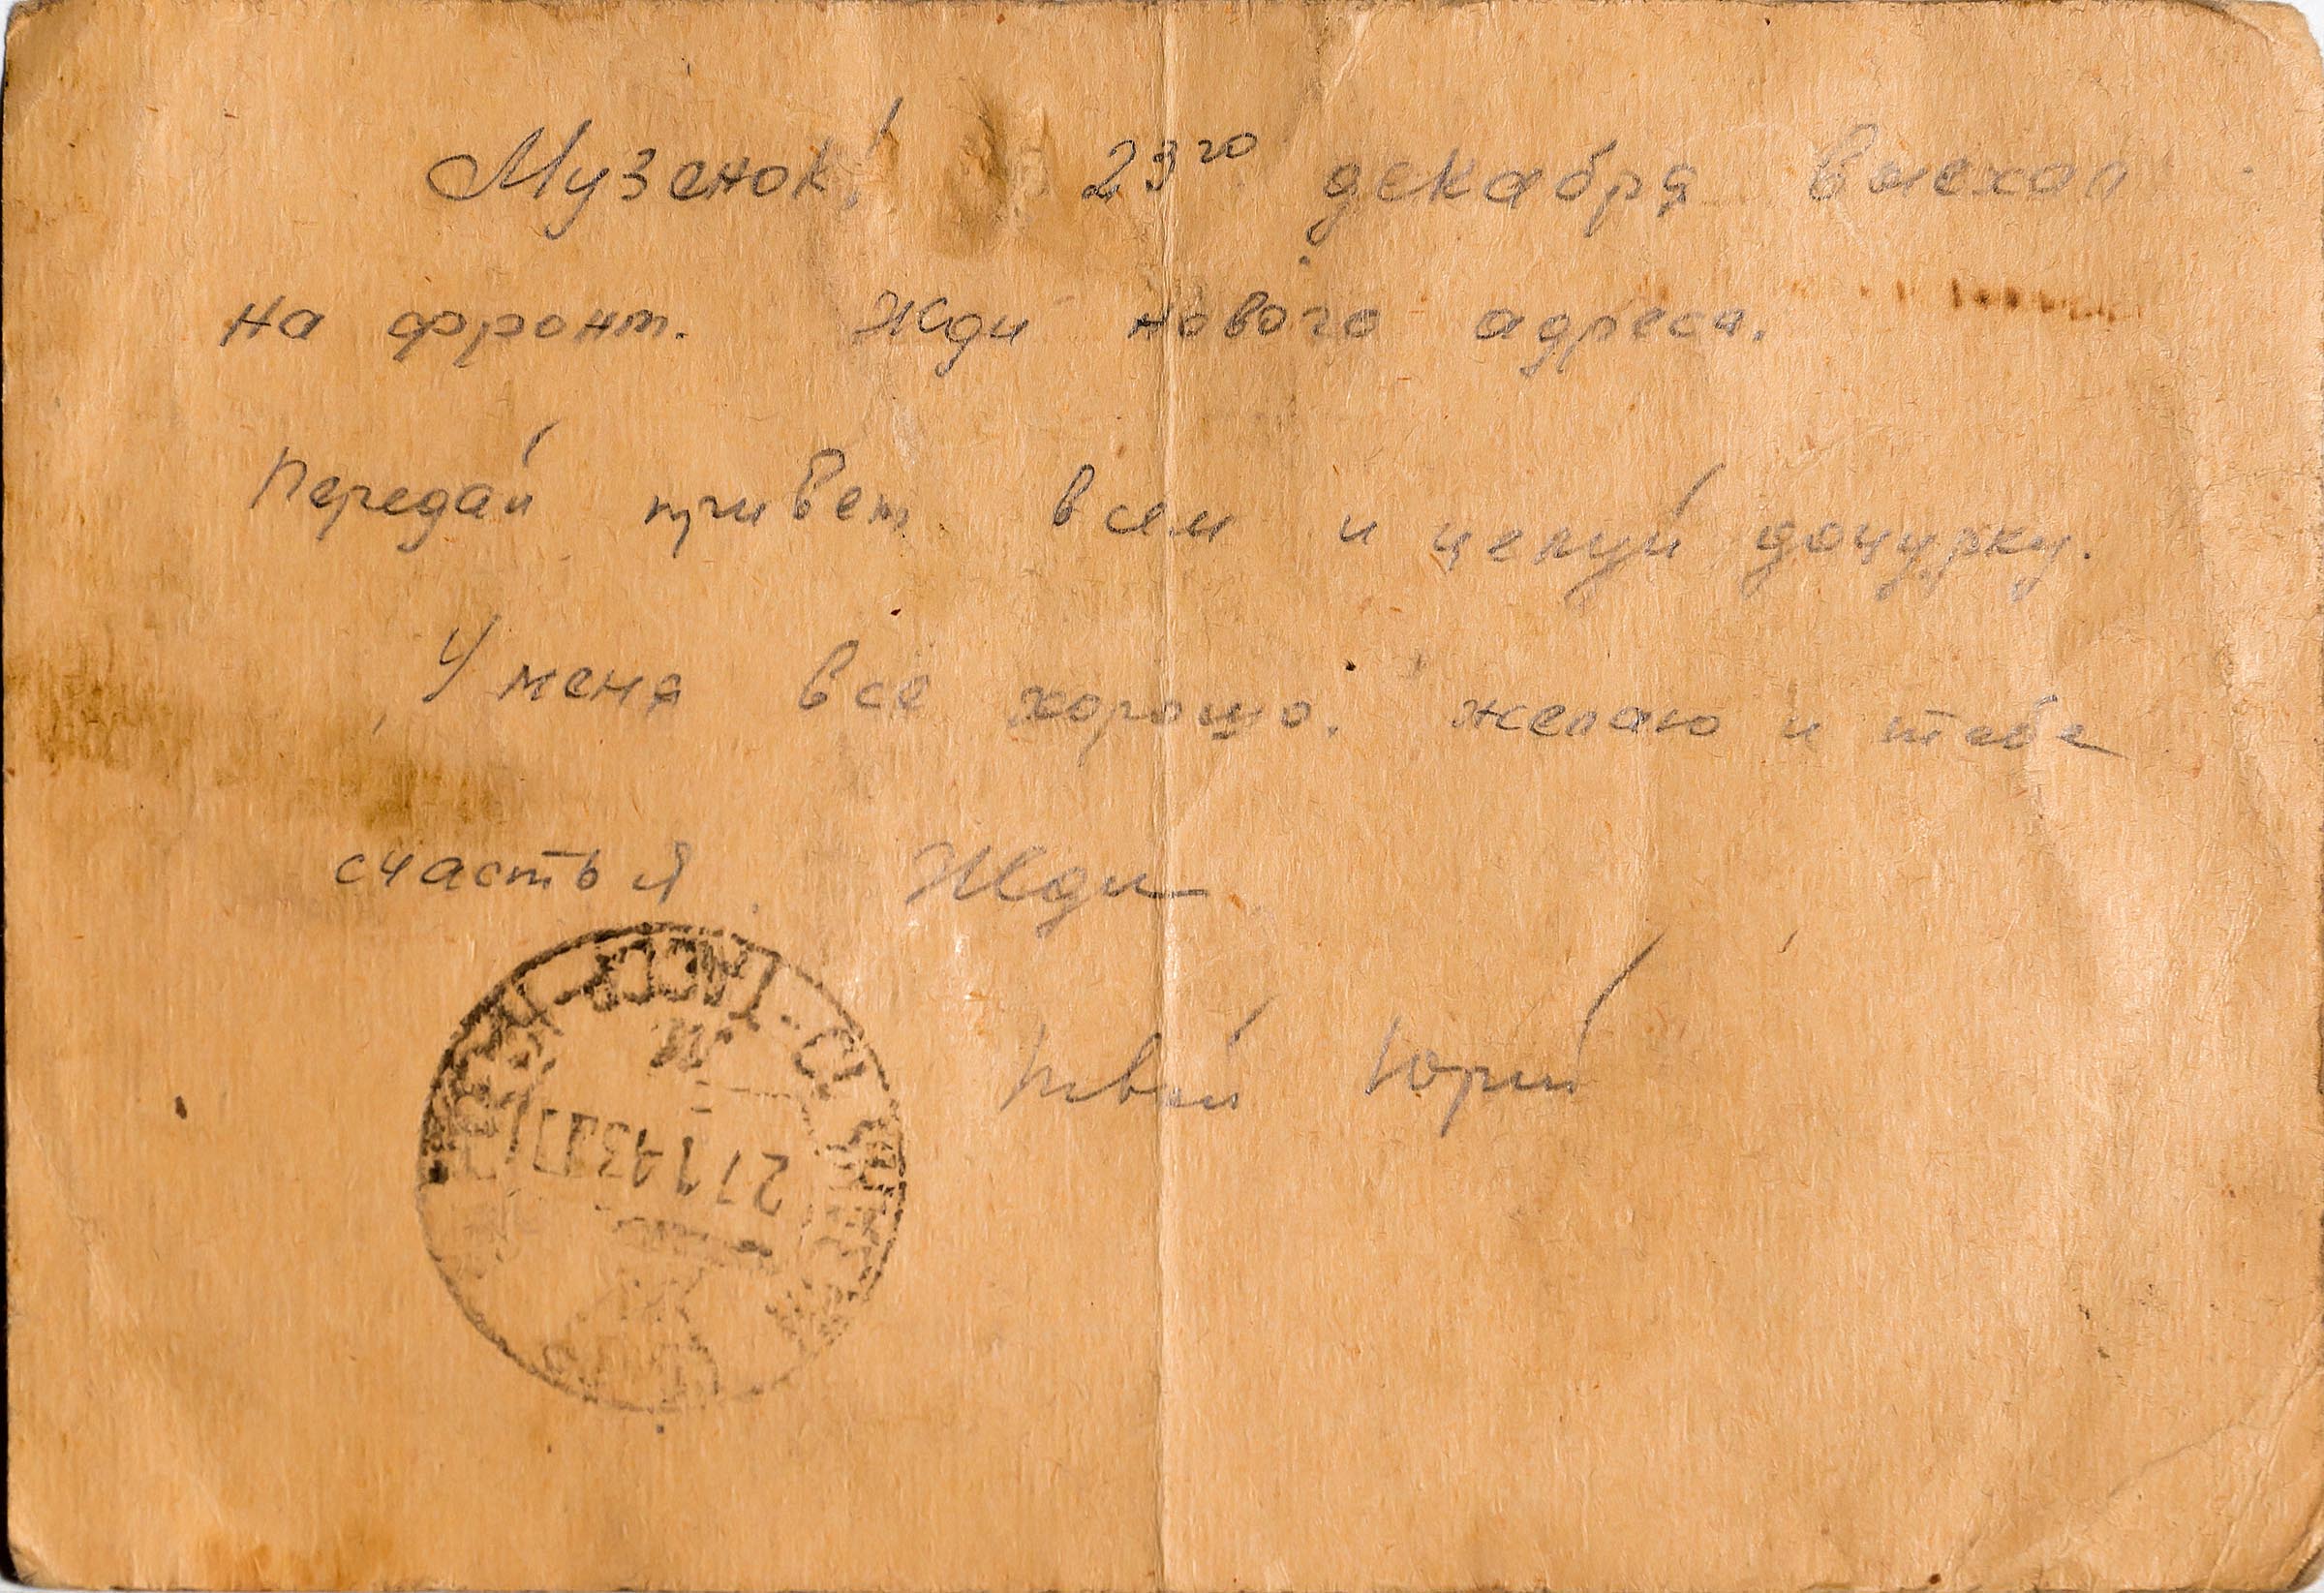 Музенок! 23го декабря выехал
на фронт. Жди нового адреса.
Передай привет всем и целуй дочурку.
У меня все хорошо. желаю и тебе
счастья. Жди
твой Юрий
27 1 43